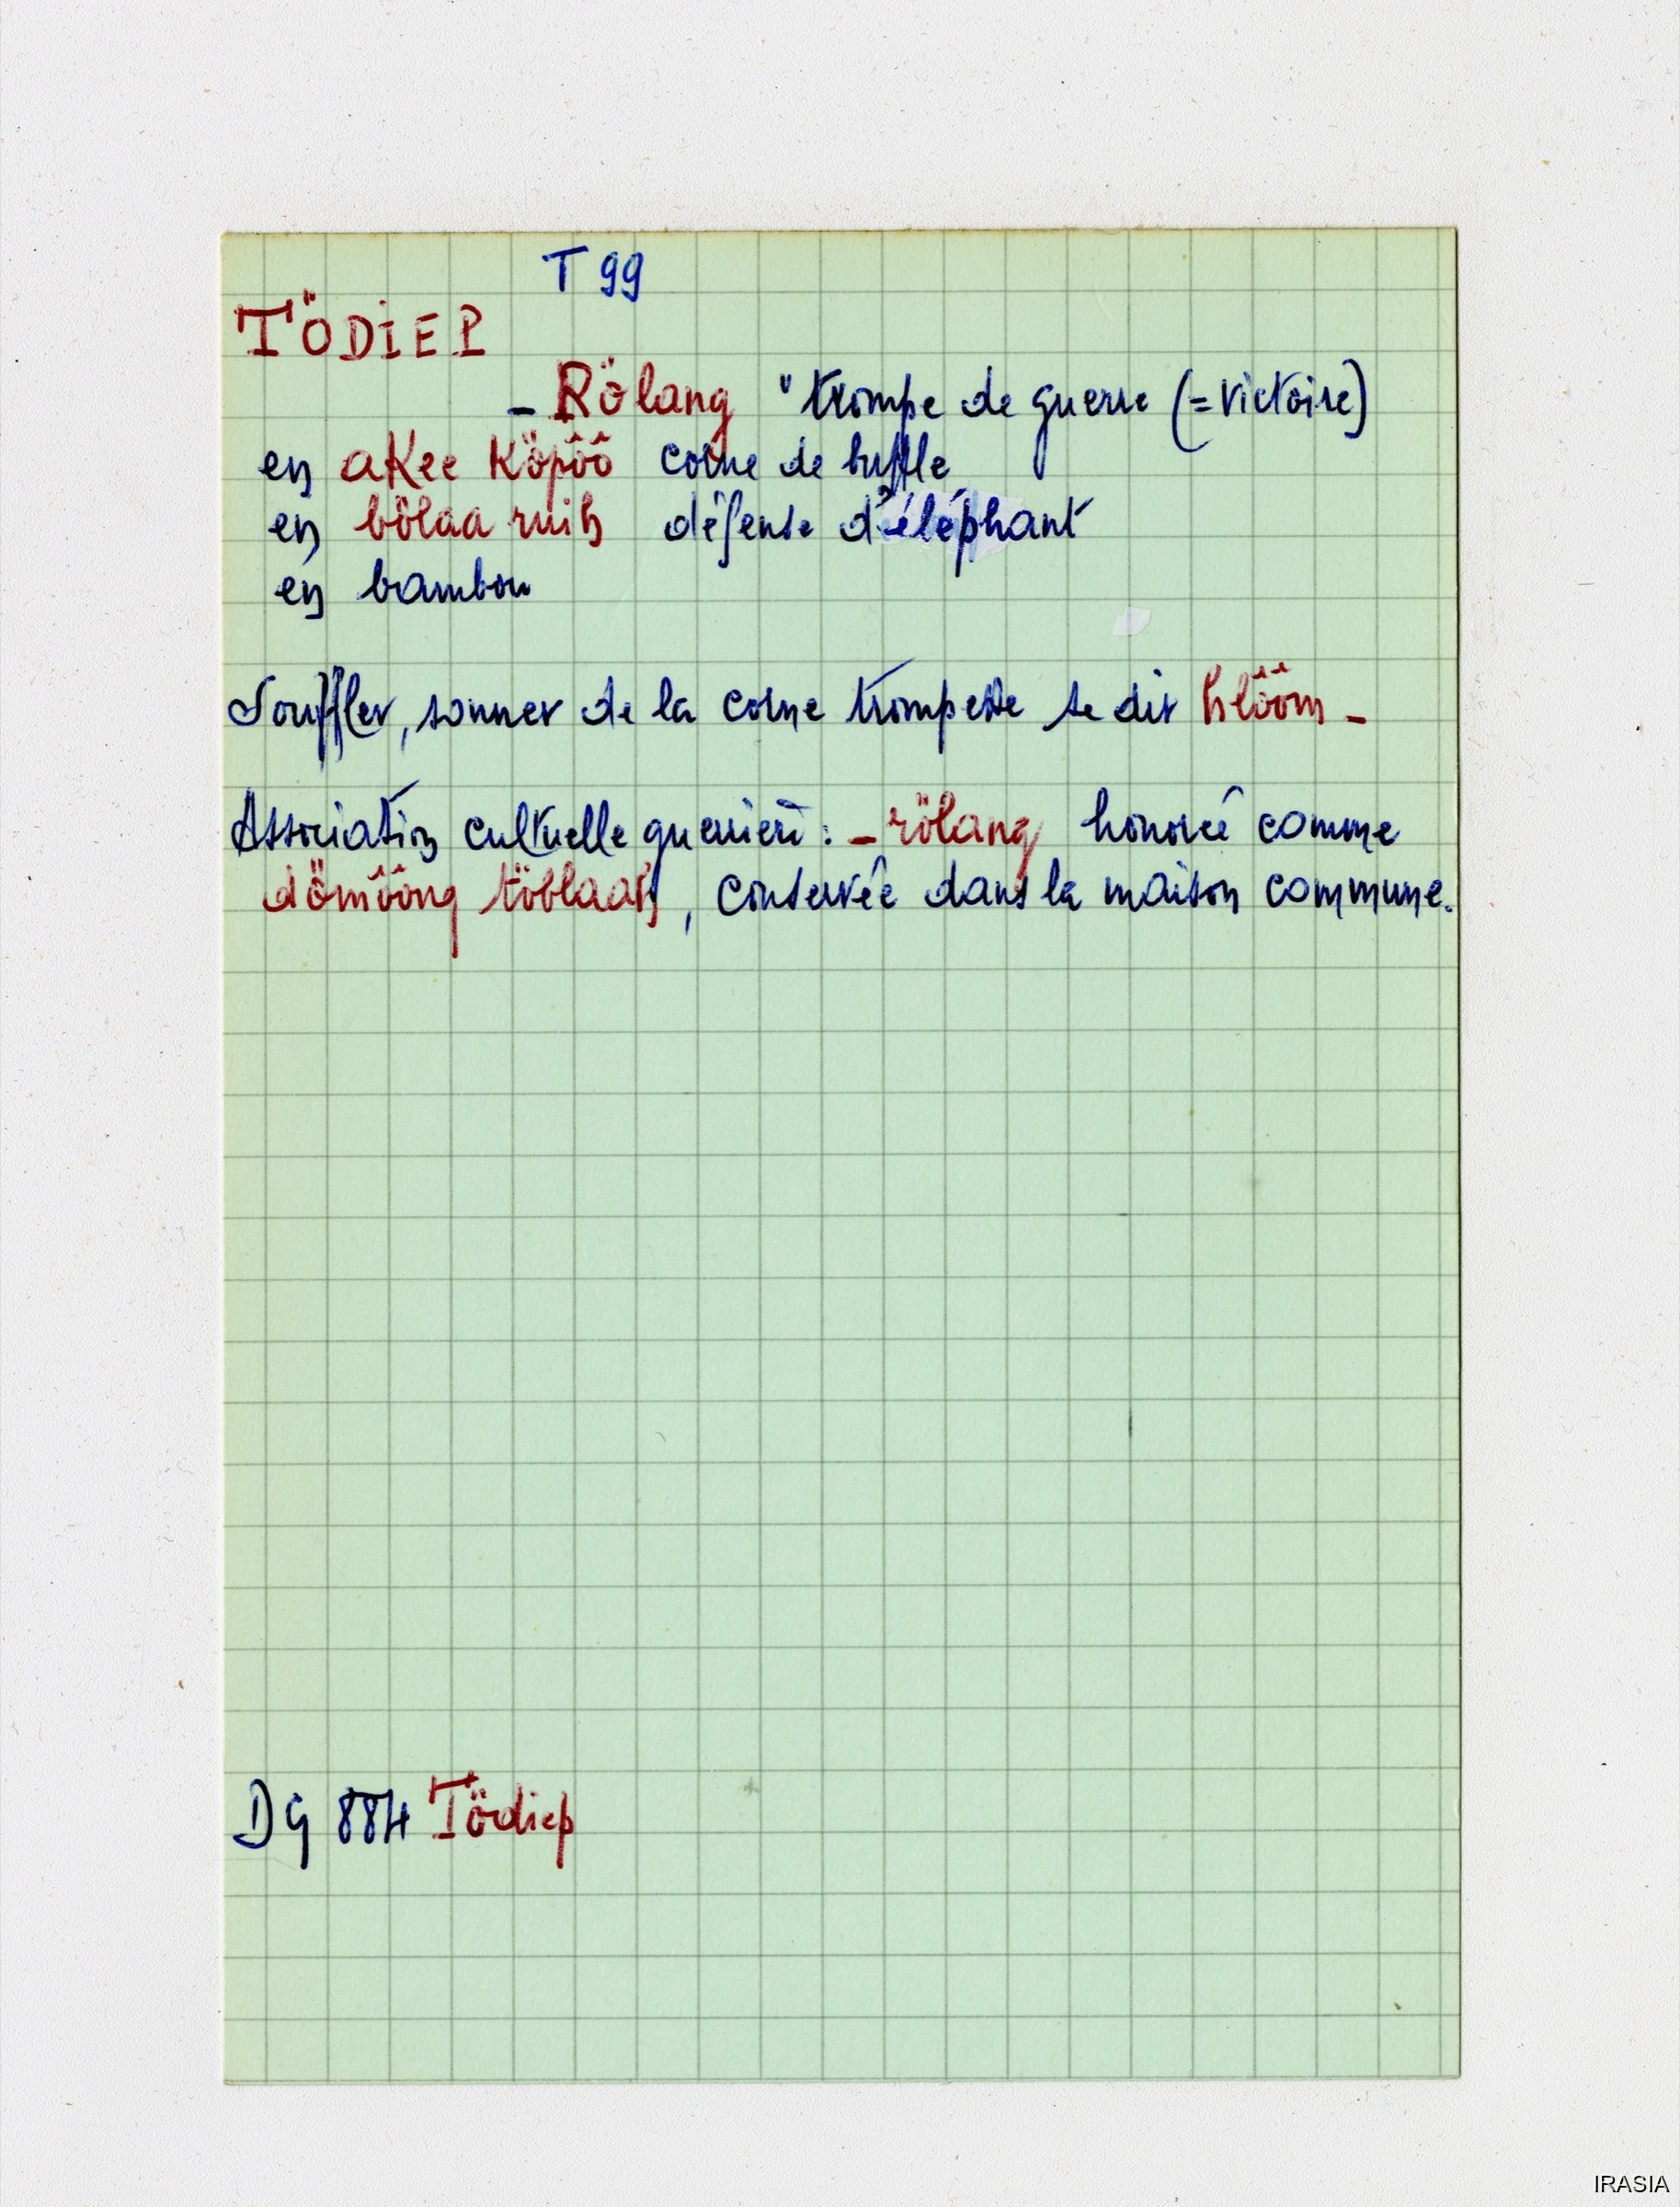 T 99
TÖDIEP
- Rölang "trompe de guerre (= victoire)
en akee köpôô corne de buffle
en bölaa ruih défense d'éléphant
en bambou
Souffler, sonner de la corne trompette se dit hlôôm -
Association cultuelle guerrière : - rölang honorée comme
dömôông töblaah, conservée dans la maison commune.
DG 884 Tödiep
IRASIA